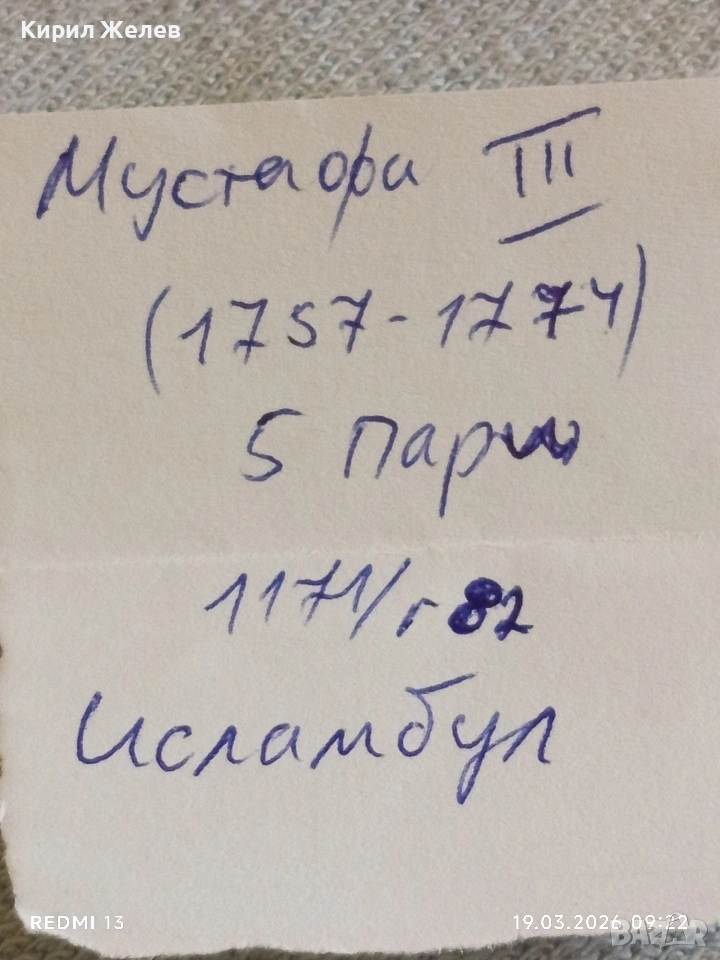 Кирил Желев
Мустафа III
(1757-1774)
5 пари
1171/г82
Исламбул
REDMI 13
19.03.2026 09:22
BAZAR